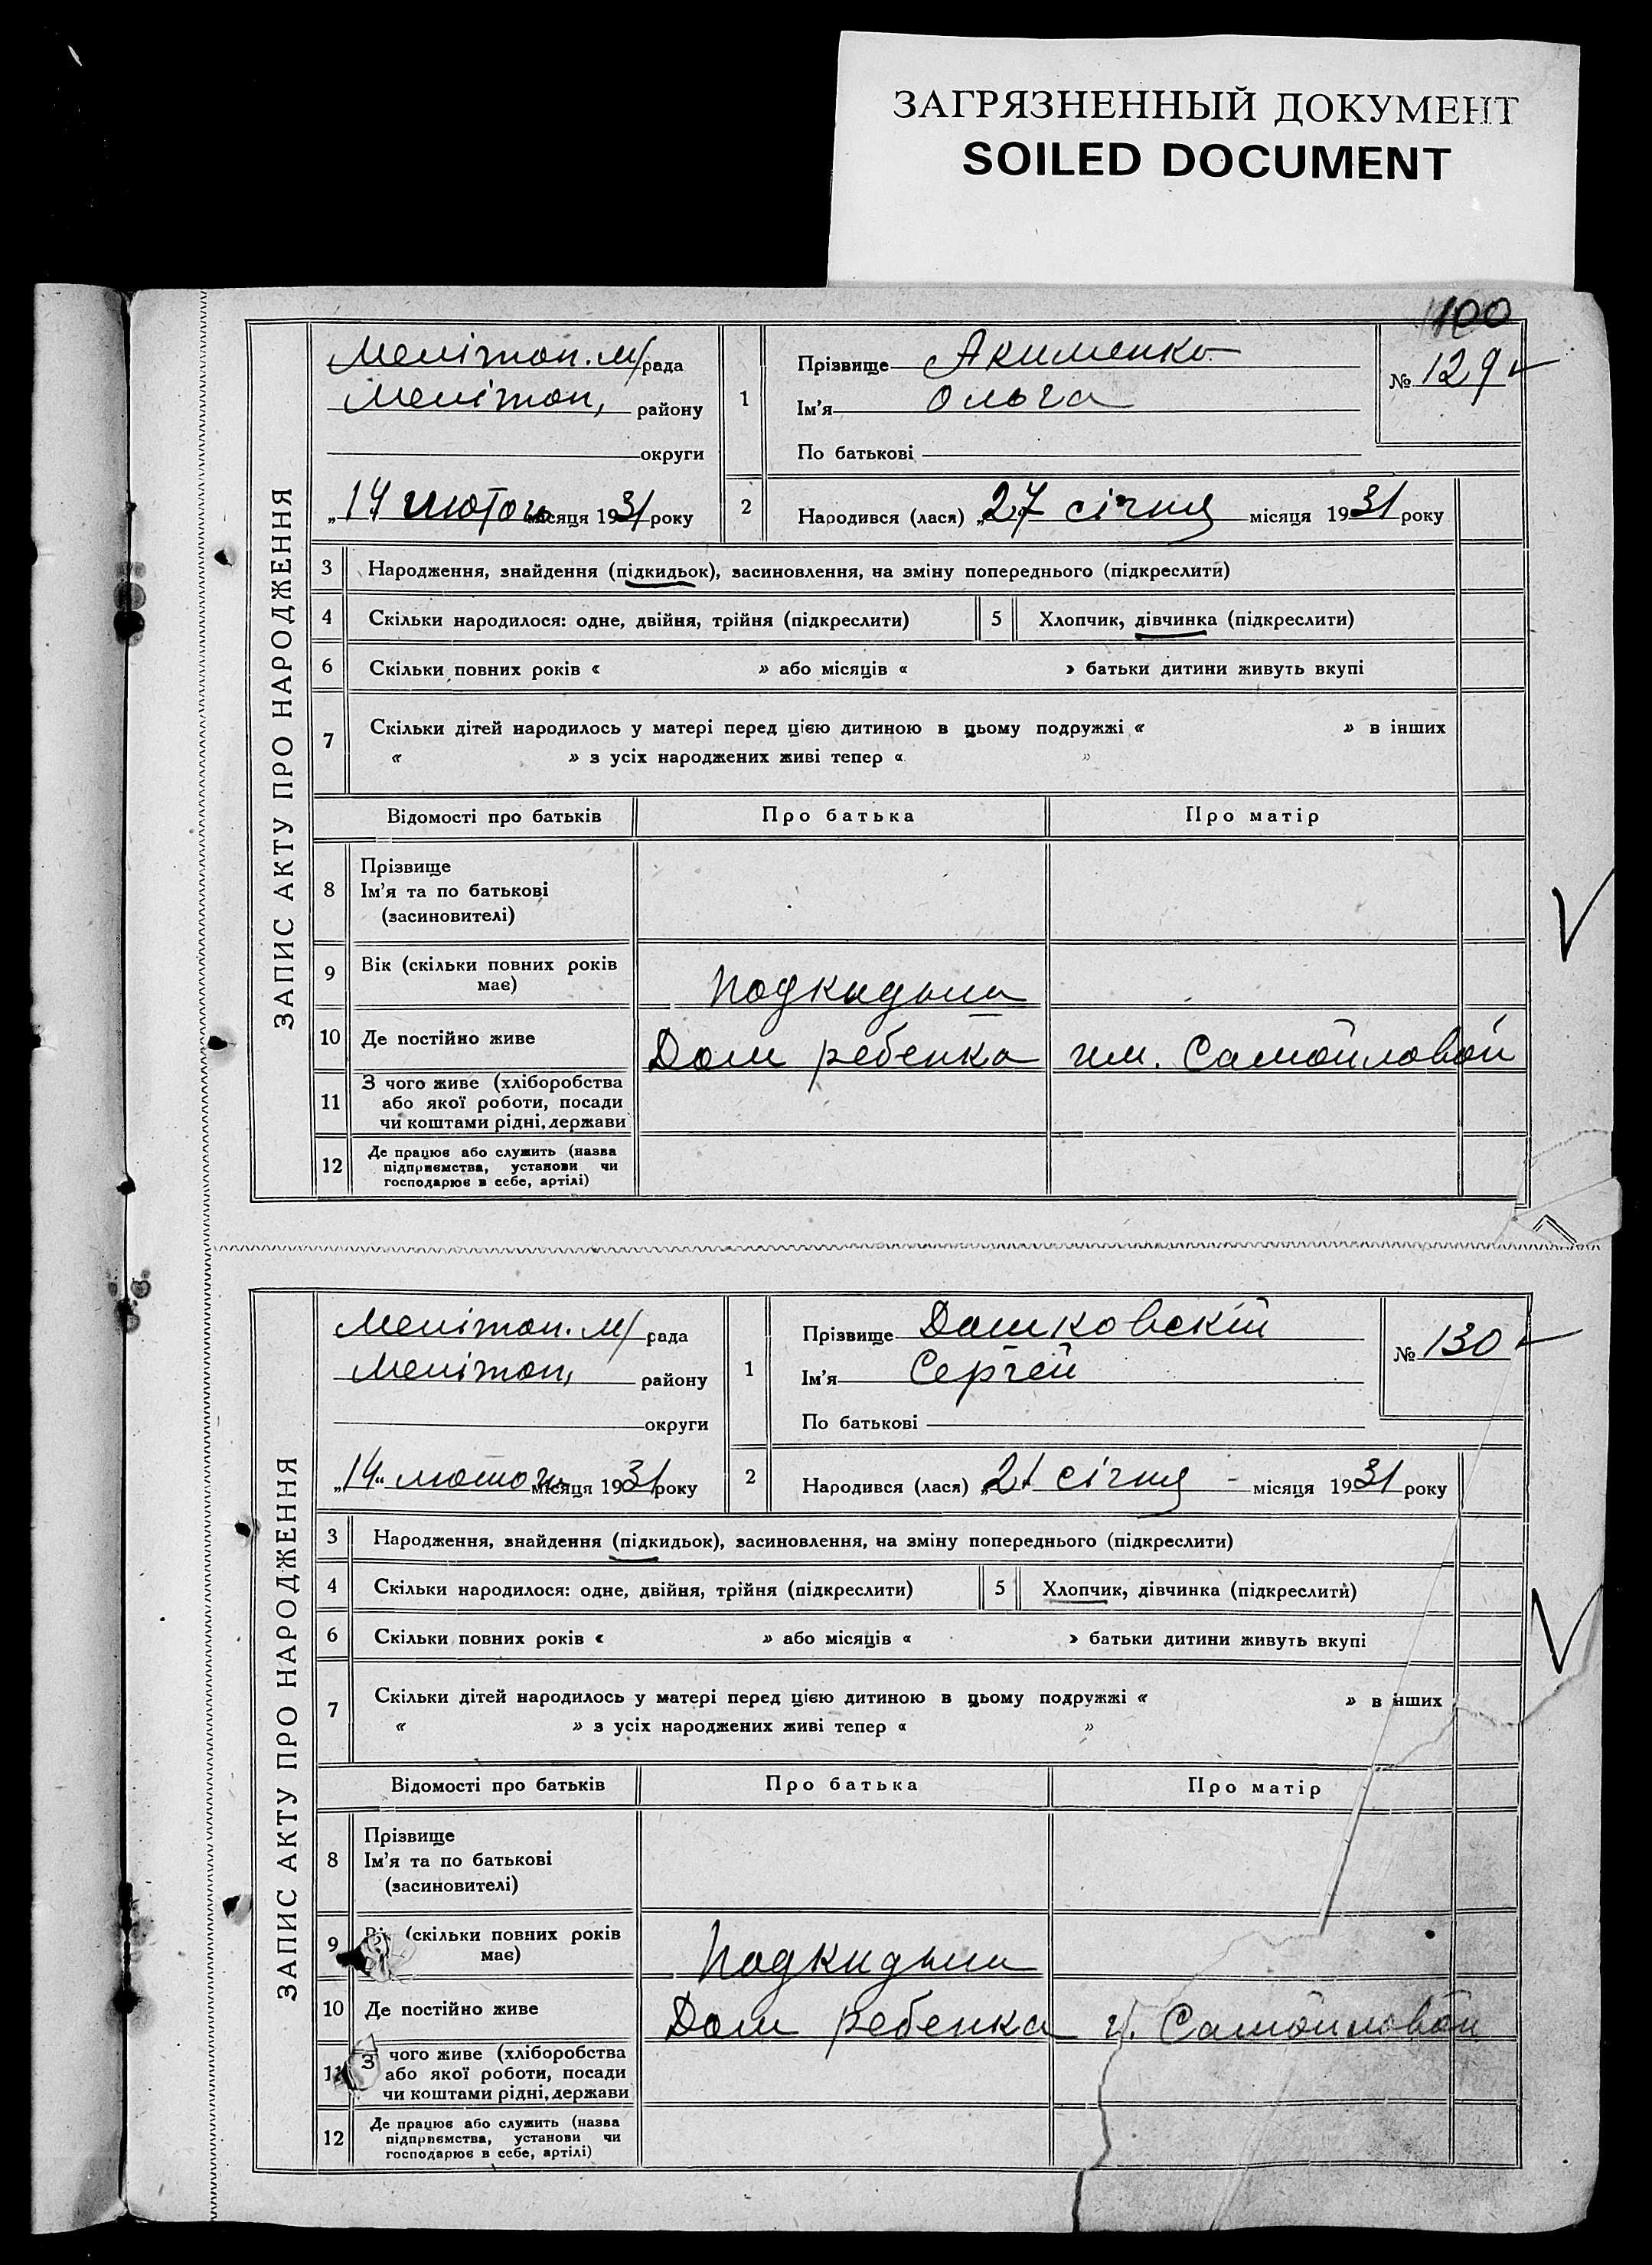 ЗАГРЯЗНЕННЫЙ ДОКУМЕНТ
SOILED DOCUMENT
100
ЗАПИС АКТУ ПРО НАРОДЖЕННЯ
Мелітоп. м/рада
Мелітоп, району
округи
„14 лютого місяця 1931 року
1
Прізвище Акименко
Ім'я Ольга
По батькові
№ 129
2
Народився (лася) „27 січня місяця 1931 року
3 Народження, знайдення (підкидьок), засиновлення, на зміну попереднього (підкреслити)
4 Скільки народилося: одне, двійня, трійня (підкреслити) 5 Хлопчик, дівчинка (підкреслити)
6 Скільки повних років « » або місяців « » батьки дитини живуть вкупі
7 Скільки дітей народилось у матері перед цією дитиною в цьому подружжі « » в інших
« » з усіх народжених живі тепер « »
Відомості про батьків Про батька Про матір
8 Прізвище
Ім'я та по батькові
(засиновителі)
9 Вік (скільки повних років
має)
Подкидыш
10 Де постійно живе Дом ребенка им. Самойловой
11 З чого живе (хліборобства
або якої роботи, посади
чи коштами рідні, держави
12 Де працює або служить (назва
підприємства, установи чи
господарює в себе, артілі)
ЗАПИС АКТУ ПРО НАРОДЖЕННЯ
Мелітоп. м/рада
Мелітоп, району
округи
„14" лютого місяця 1931 року
1
Прізвище Дашковскій
Ім'я Сергей
По батькові
№ 130
2
Народився (лася) „21 січня - місяця 1931 року
3 Народження, знайдення (підкидьок), засиновлення, на зміну попереднього (підкреслити)
4 Скільки народилося: одне, двійня, трійня (підкреслити) 5 Хлопчик, дівчинка (підкреслити)
6 Скільки повних років « » або місяців « » батьки дитини живуть вкупі
7 Скільки дітей народилось у матері перед цією дитиною в цьому подружжі « » в інших
« » з усіх народжених живі тепер « »
Відомості про батьків Про батька Про матір
8 Прізвище
Ім'я та по батькові
(засиновителі)
9 Вік (скільки повних років
має)
Подкидыш
10 Де постійно живе Дом ребенка и. Самойловой
11 З чого живе (хліборобства
або якої роботи, посади
чи коштами рідні, держави
12 Де працює або служить (назва
підприємства, установи чи
господарює в себе, артілі)